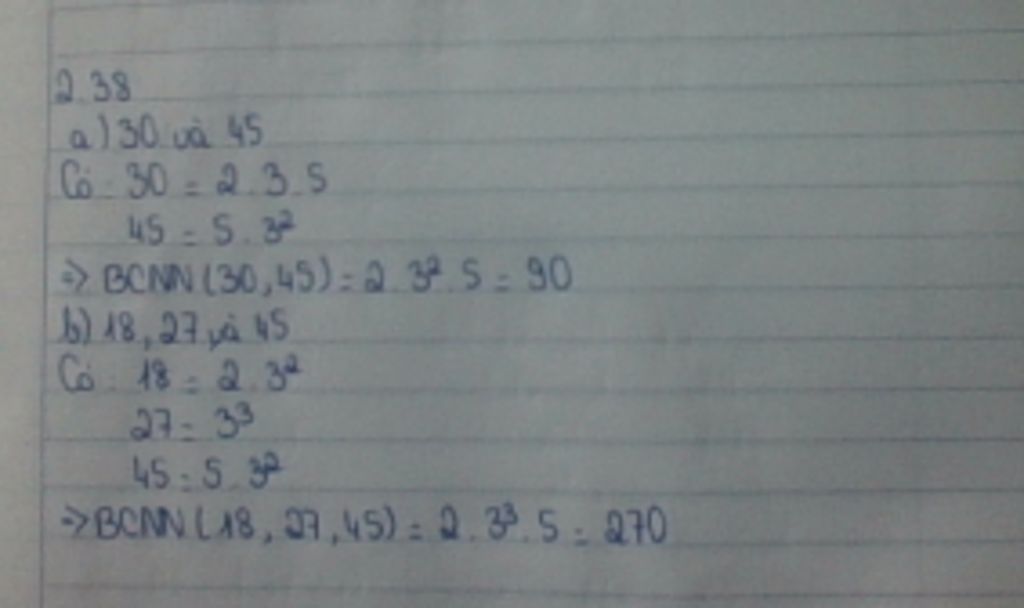 2.38
a) 30 và 45
Có: 30 = 2.3.5
45 = 5.3²
=> BCNN(30,45) = 2.3².5 = 90
b) 18, 27 và 45
Có: 18 = 2.3²
27 = 3³
45 = 5.3²
=> BCNN(18, 27, 45) = 2.3³.5 = 270